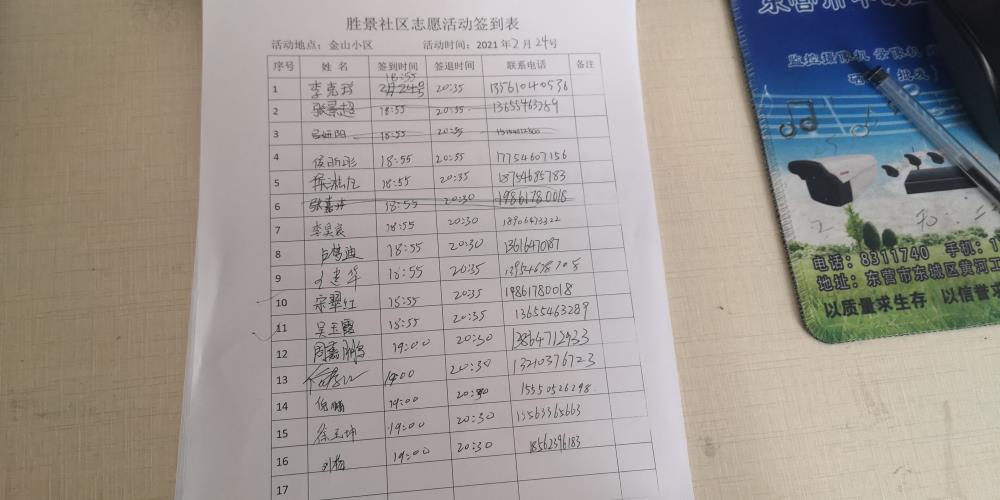 胜景社区志愿活动签到表
活动地点：金山小区 活动时间：2021年2月24号
序号 姓名 签到时间 签退时间 联系电话 备注
18:55
1 李克玲 2月24号 20:35 13561040536
2 张景超 18:55 20:35 13655463289
3 18:55 20:35
4 18:55 20:35 17754607156
5 18:55 20:35 18754685783
6 18:55 20:30 19861780018
7 李昊宸 18:55 20:30 18906473322
8 18:55 20:30 13616470187
9 18:55 20:35 13954678708
10 宋翠红 18:55 20:35 19861780018
11 吴玉霞 18:55 20:35 13655463289
12 周嘉鹏 19:00 20:30
13 19:00 20:30 13210376723
14 倪鹏 19:00 20:30 15550526298
15 徐玉坤 19:00 20:30 13563365663
16 刘杨 19:00 20:30 18562396183
17
监控摄像机 录像机
批发
电话：8311740 手机：1
地址：东营市东城区黄河工
以质量求生存 以信誉求